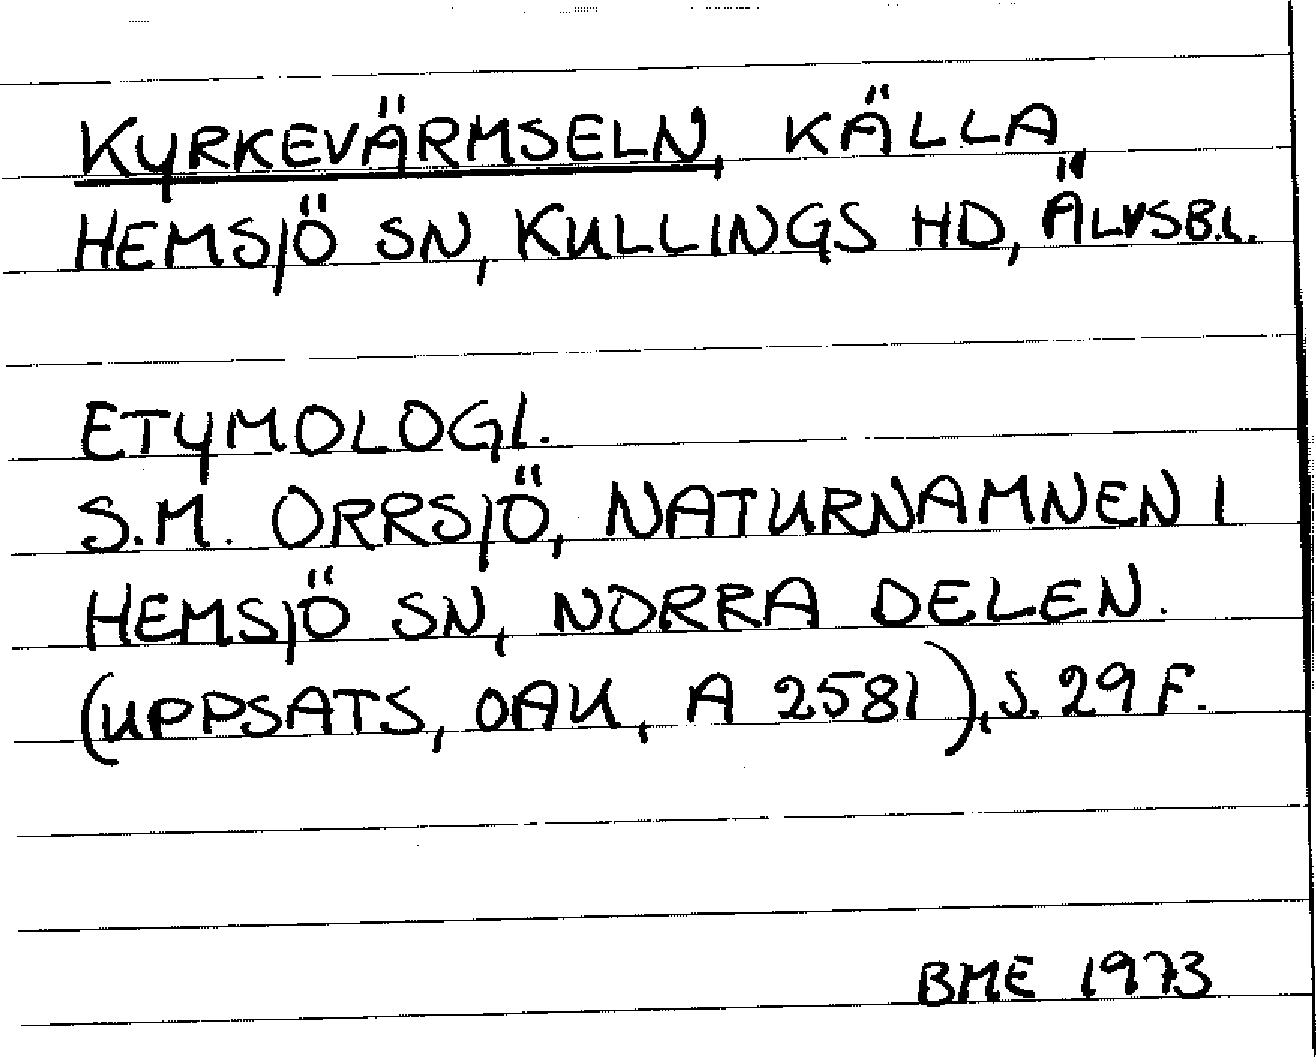 KYRKEVÄRMSELN, KÄLLA,
HEMSJÖ SN, KULLINGS HD, ÄLVSB.L.
ETYMOLOGI.
S.M. ORRSJÖ, NATURNAMNEN I
HEMSJÖ SN, NORRA DELEN.
(UPPSATS, OAU, A 2581), S. 29 F.
BME 1973